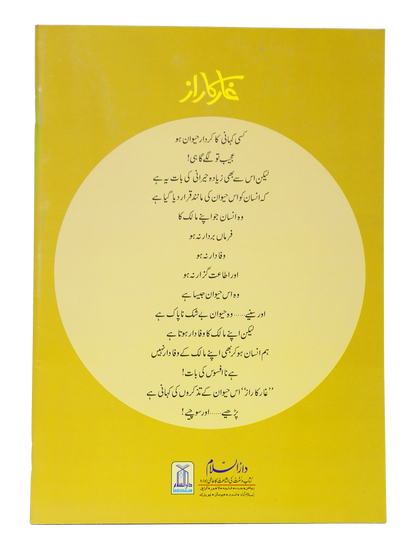 غار کا راز
کسی کہانی کا کردار حیوان ہو
عجیب تو لگے گا ہی!
لیکن اس سے بھی زیادہ حیرانی کی بات یہ ہے
کہ انسان کو اس حیوان کی مانند قرار دیا گیا ہے
وہ انسان جو اپنے مالک کا
فرماں بردار نہ ہو
وفادار نہ ہو
اور اطاعت گزار نہ ہو
وہ اس حیوان جیسا ہے
اور سنیے.....وہ حیوان بے شک ناپاک ہے
لیکن اپنے مالک کا وفادار ہوتا ہے
ہم انسان ہو کر بھی اپنے مالک کے وفادار نہیں
ہے نا افسوس کی بات!
"غار کا راز" اس حیوان کے تذکروں کی کہانی ہے
پڑھیے.....اور سوچیے!
دارالسلام
کتاب و سنت کی اشاعت کا عالمی ادارہ
دارالسلام